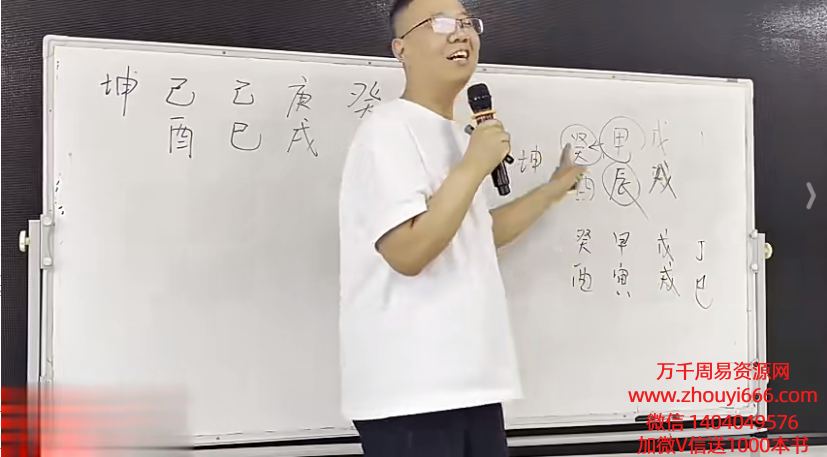 坤 己 己 庚 癸
酉 巳 戌
坤 癸 甲 戊
酉 辰 戌
癸 甲 戊 丁
酉 寅 戌 巳
万千周易资源网
www.zhouyi666.com
微信 1404049576
加微V信送1000本书